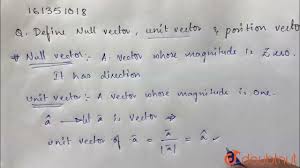 161351018
Q. Define Null vector, unit vector & position vector
# Null vector:- A vector whose magnitude is Zero.
It has direction
Unit vector:- A vector whose magnitude is one.
â → Let ā is vector ⇒
unit vector of ā = ā/|ā| = â
doubtnut